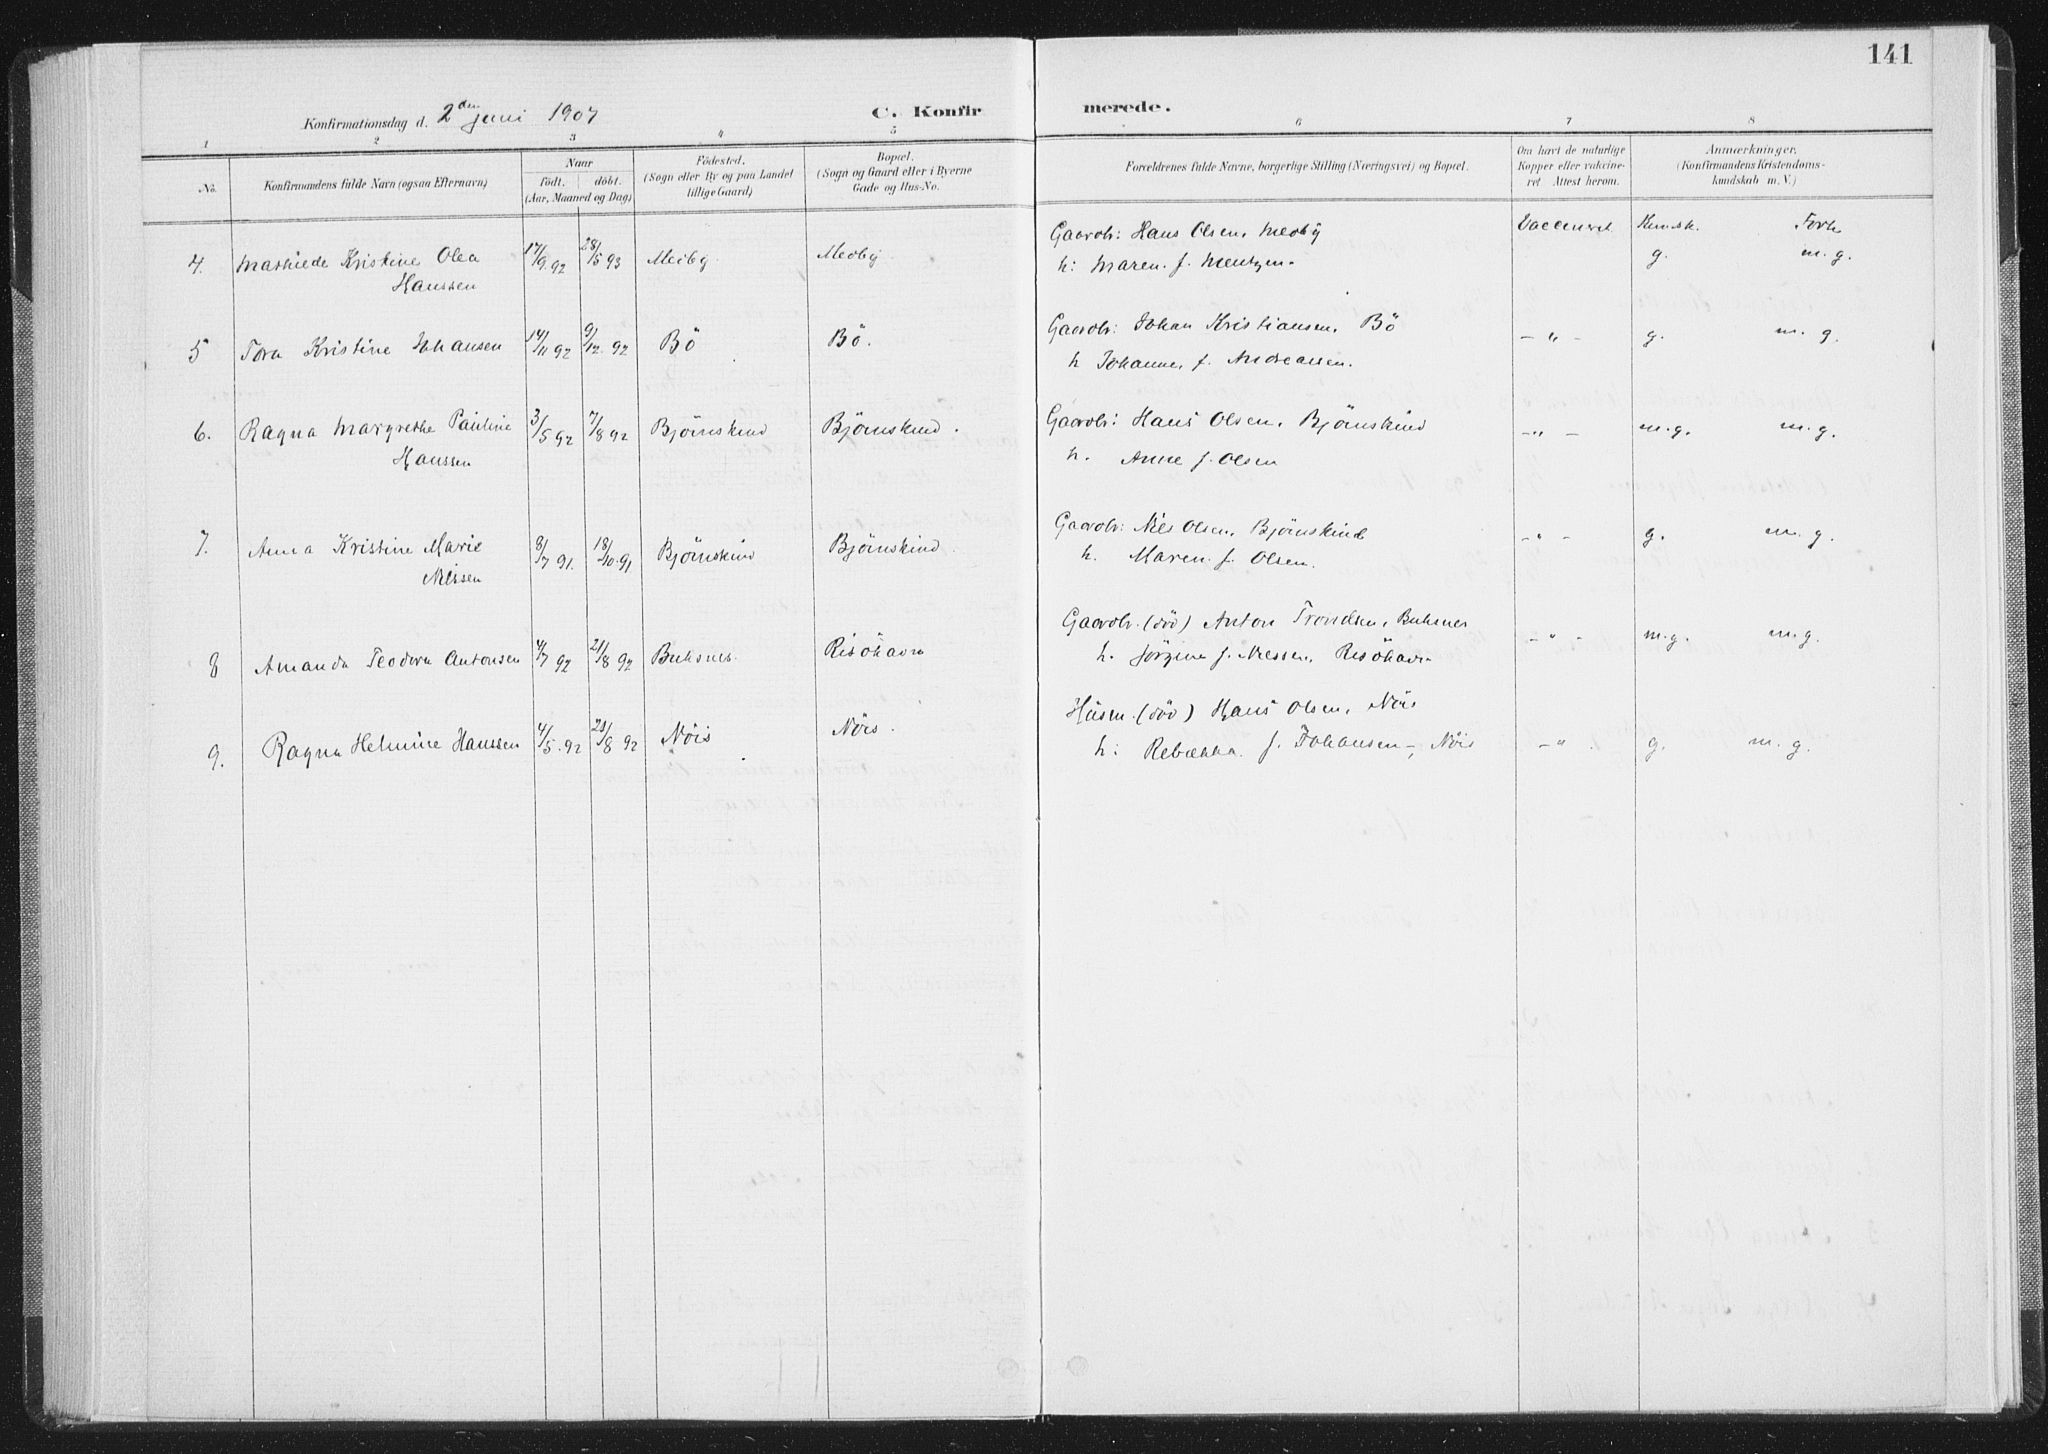 141
Konfirmationsdag d. 2den Juni 1907 C. Konfirmerede.
1 2 3 4 5 6 7 8
No. Konfirmandens fulde Navn (ogsaa Efternavn) Naar Födested. Bopæl. Forældrenes fulde Navne, borgerlige Stilling (Næringsvei) og Bopæl. Om havt de naturlige Anmærkninger.
födt. döbt. (Sogn eller By og paa Landet (Sogn og Gaard eller i Byerne Kopper eller vakcine- (Konfirmandens Kristendoms-
(Aar, Maaned og Dag) tillige Gaard) Gade og Hus-No. ret Attest herom. kundskab m. V.)
Gaardbr: Hans Olsen, Medby Vaccineret Kundsk. Forh.
4. Mathilde Kristine Olea 17/9 92 28/5 93 Medby Medby h: Maren f. Mentzen. g. m.g.
Hanssen
Gaardbr: Johan Kristiansen, Bö
5 Tora Kristine Johansen 14/11 92 9/12 92 Bö Bö. - " - g. m. g.
h Johanne, f. Andreassen.
6. Ragna Margrethe Pauline 3/5 92 7/8 92 Björnskind Björnskind. Gaardbr: Hans Olsen, Björnskind - " - m.g. m. g.
Hanssen h. Anne f. Olsen
Gaardbr: Nils Olsen, Björnskind
7. Anna Kristine Marie 8/7 91. 18/10 91 Björnskind Björnskind h. Maren f. Olsen. - " - g. m. g.
Nilssen
Gaardbr. (död) Anton Trondsen, Buksnes
8 Amanda Teodora Antonsen 4/7 92 21/8 92 Buksnes. Risöhavn h. Jörgine f. Nilssen, Risöhavn - " - m.g. m.g.
Husm. (död) Hans Olsen, Nöis
9. Ragna Helmine Hanssen 4/5 92 21/8 92 Nöis Nöis. h: Rebækka f. Johansen -, Nöis - " . g. m. g.